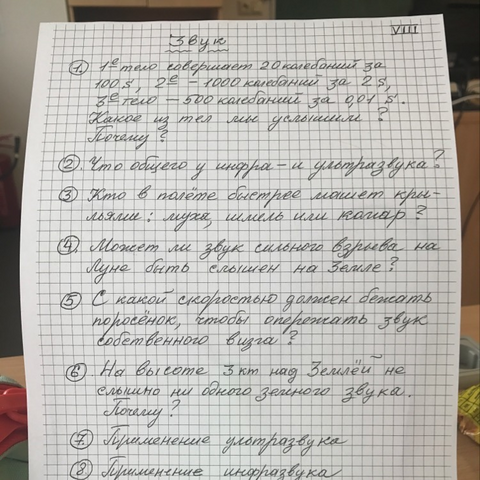 VIII
Звук
1. 1е тело совершает 20 колебаний за
100 s, 2е – 1000 колебаний за 2 s,
3е тело – 500 колебаний за 0,01 s.
Какое из тел мы услышим?
Почему?
2. Что общего у инфра- и ультразвука?
3. Кто в полёте быстрее машет кры-
льями: муха, шмель или комар?
4. Может ли звук сильного взрыва на
Луне быть слышен на Земле?
5. С какой скоростью должен бежать
поросёнок, чтобы опережать звук
собственного визга?
6. На высоте 3 км над Землёй не
слышно ни одного земного звука.
Почему?
7. Применение ультразвука
8. Применение инфразвука